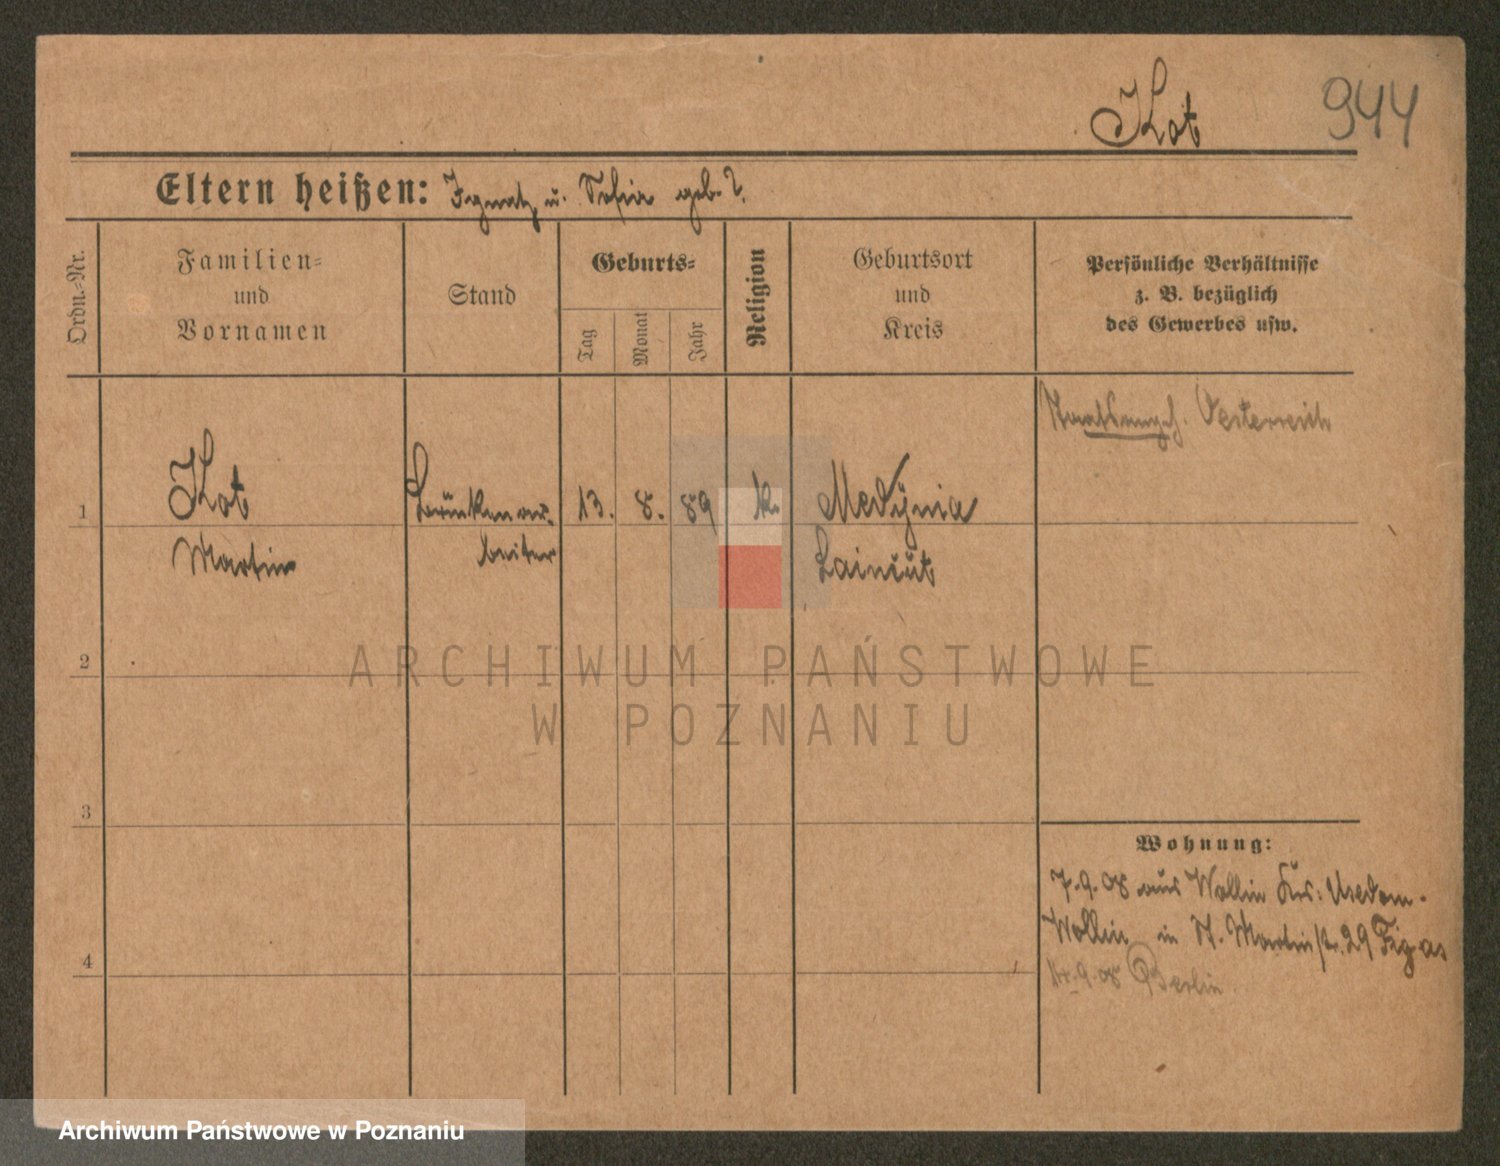 Kot 944
Eltern heißen: Ignatz u. Sofia geb. ?
Ordn.-Nr.
Familien-
und
Vornamen
Stand
Geburts-
Tag
Monat
Jahr
Religion
Geburtsort
und
Kreis
Persönliche Verhältnisse
z. B. bezüglich
des Gewerbes usw.
Staatsangeh. Oesterreich
1 Kot 13. 8. 89 k. Medynia
Martin beiter
2
3
4
Wohnung:
7.9.08 aus Wollin Krs: Usedom-
Wollin in St. Martinstr. 29 Figas
9.08 Berlin
ARCHIWUM PAŃSTWOWE
W POZNANIU
Archiwum Państwowe w Poznaniu